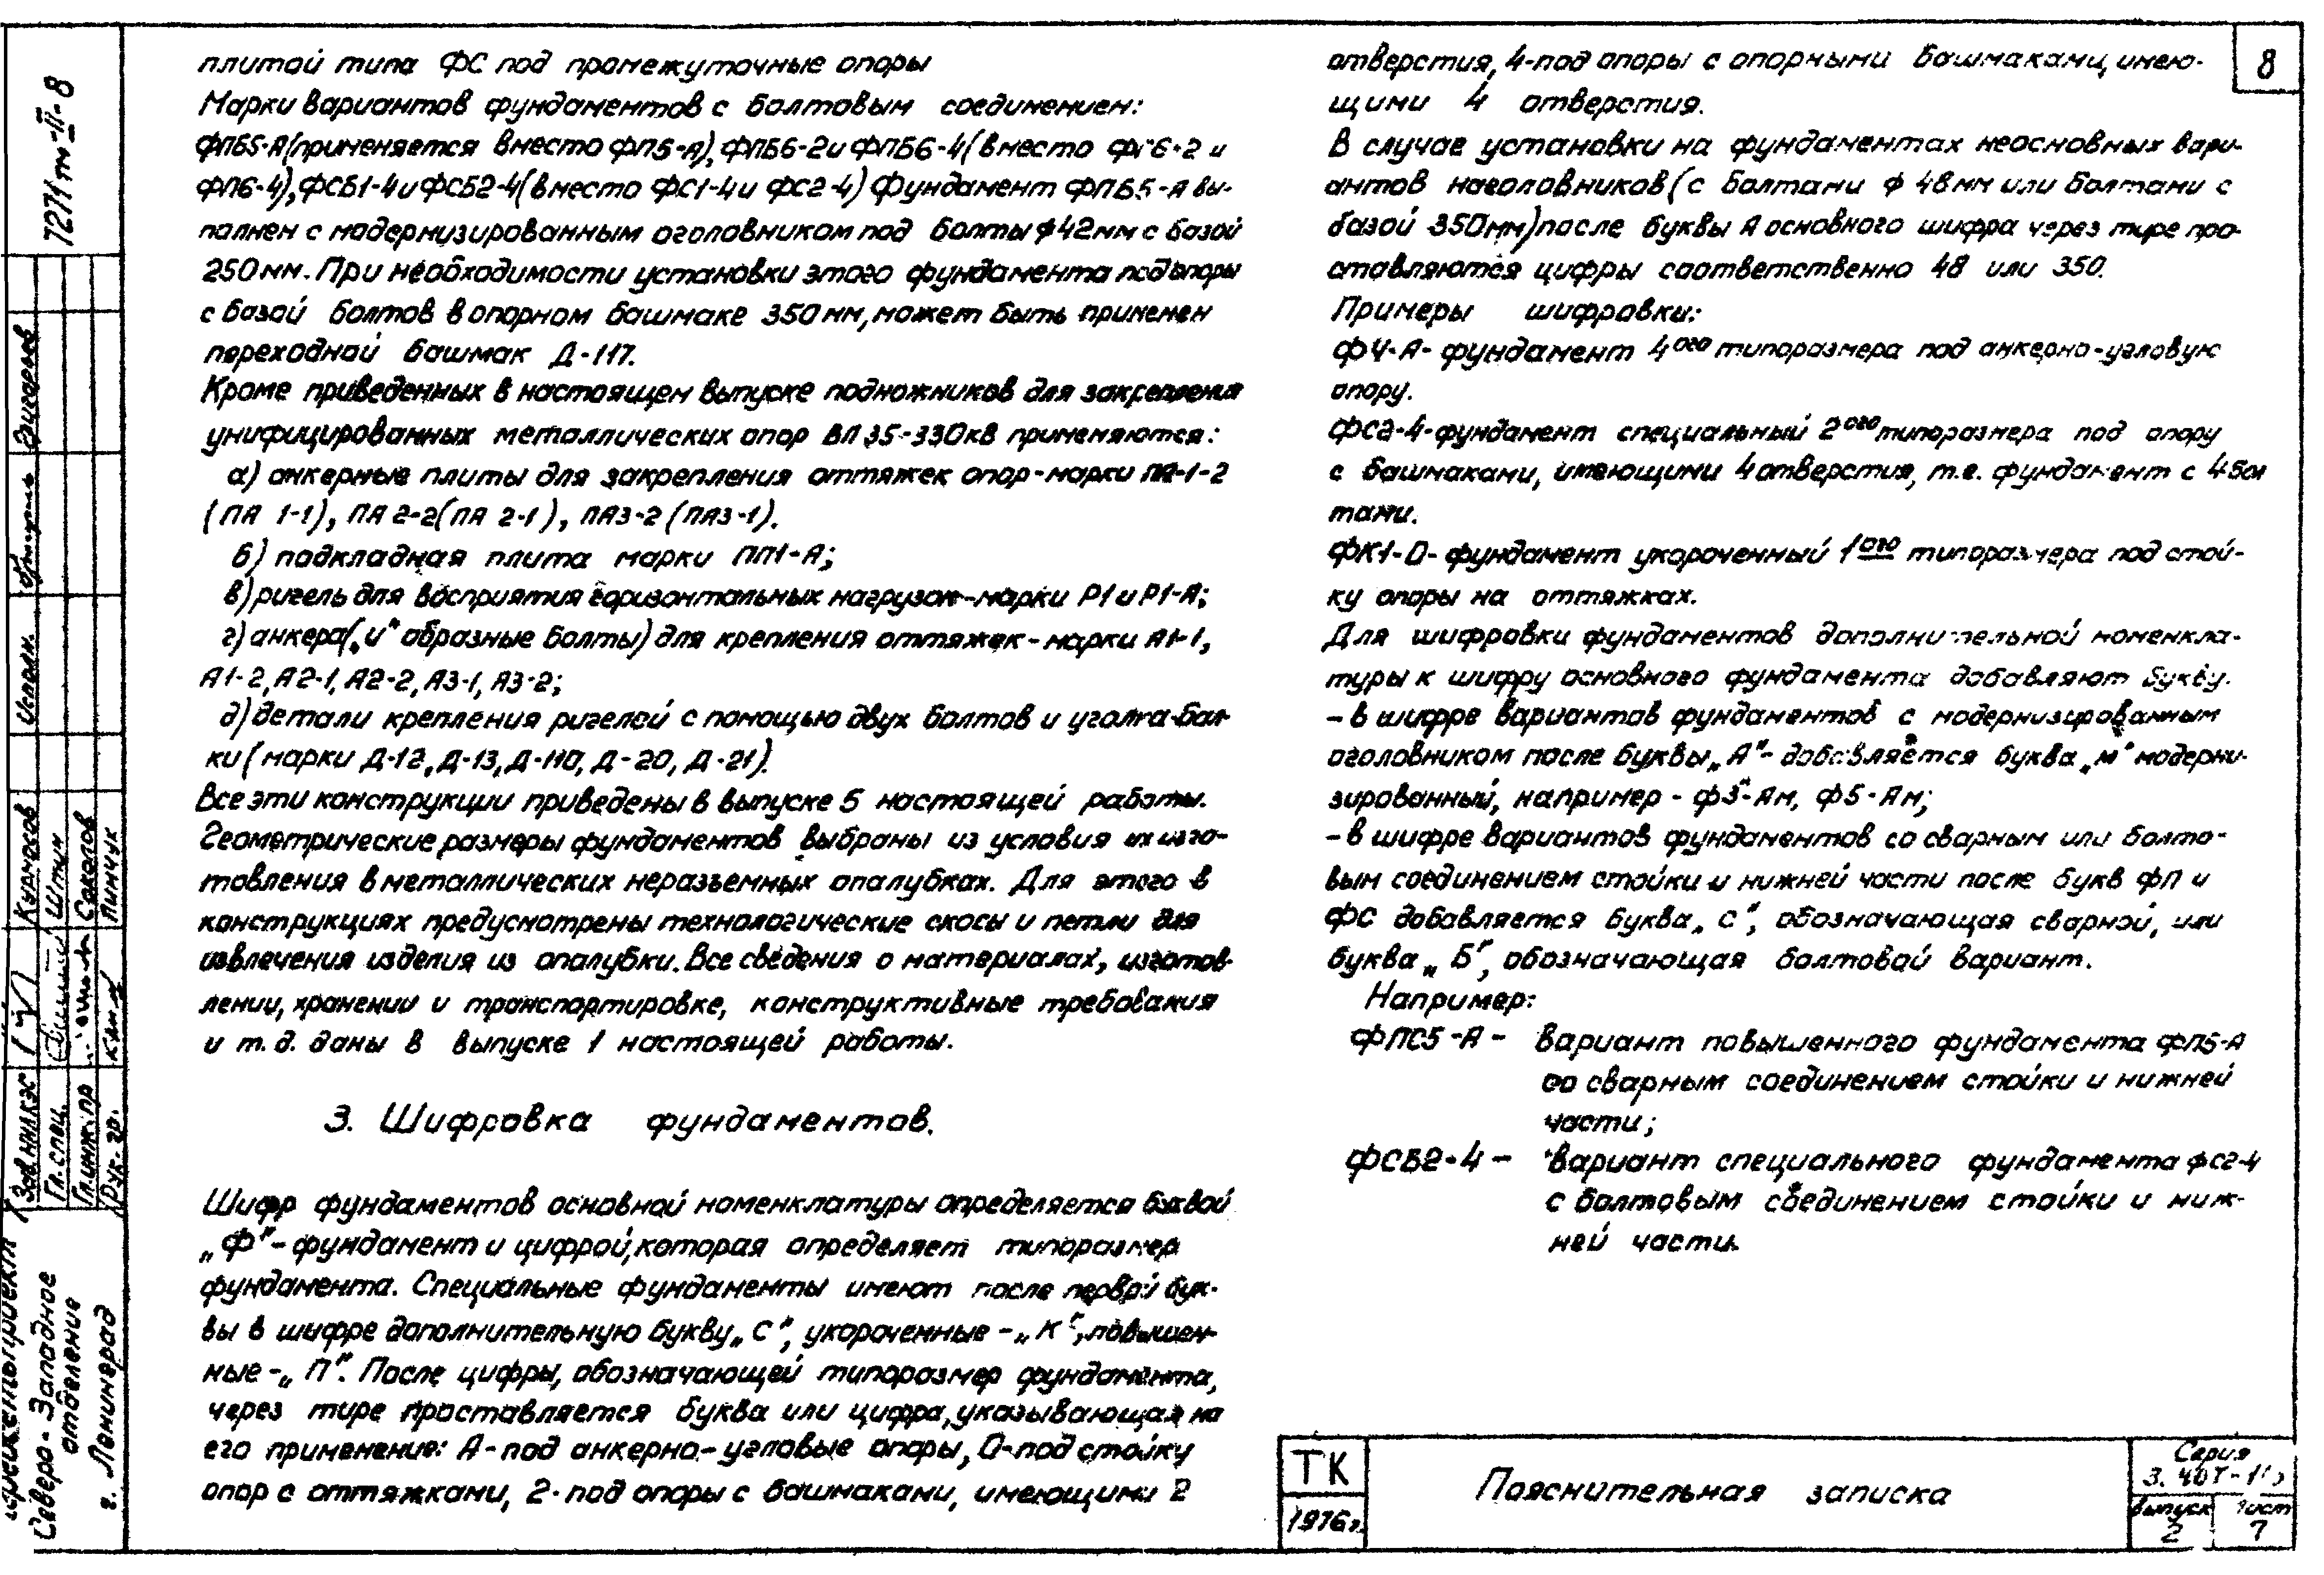 плитой типа ФС под промежуточные опоры
Марки вариантов фундаментов с болтовым соединением:
ФПБ5-А (применяется вместо ФП5-А), ФПБ6-2 и ФПБ6-4 (вместо ФП6-2 и
ФП6-4), ФСБ1-4 и ФСБ2-4 (вместо ФС1-4 и ФС2-4) Фундамент ФПБ5-А вы-
полнен с модернизированным оголовником под болты ϕ42мм с базой
250 мм. При необходимости установки этого фундамента под опоры
с базой болтов в опорном башмаке 350 мм, может быть применен
переходной башмак Д-117.
Кроме приведенных в настоящем выпуске подножников для закрепления
унифицированных металлических опор ВЛ 35-330кв применяются:
а) анкерные плиты для закрепления оттяжек опор-марки ПА-1-2
(ПА 1-1), ПА 2-2 (ПА 2-1), ПА3-2 (ПА3-1).
б) подкладная плита марки ПП1-А;
в) ригель для восприятия горизонтальных нагрузок-марки Р1 и Р1-А;
г) анкера („U" образные болты) для крепления оттяжек - марки А1-1,
А1-2, А2-1, А2-2, А3-1, А3-2;
д) детали крепления ригелей с помощью двух болтов и уголка-бал-
ки (марки Д-12, Д-13, Д-110, Д-20, Д-21).
Все эти конструкции приведены в выпуске 5 настоящей работы.
Геометрические размеры фундаментов выбраны из условия их изго-
товления в металлических неразъемных опалубках. Для этого в
конструкциях предусмотрены технологические скосы и петли для
извлечения изделия из опалубки. Все сведения о материалах, изготов-
лении, хранении и транспортировке, конструктивные требования
и т.д. даны в выпуске 1 настоящей работы.
3. Шифровка фундаментов.
Шифр фундаментов основной номенклатуры определяется буквой
„Ф"- фундамент и цифрой, которая определяет типоразмер
фундамента. Специальные фундаменты имеют после первой бук-
вы в шифре дополнительную букву „С", укороченные -„К", повышен-
ные -„П". После цифры, обозначающей типоразмер фундамента,
через тире проставляется буква или цифра, указывающая на
его применение: А-под анкерно-угловые опоры, О-под стойку
опор с оттяжками, 2-под опоры с башмаками, имеющими 2
отверстия, 4-под опоры с опорными башмаками, имею-
щими 4 отверстия.
В случае установки на фундаментах неосновных вари-
антов наголовников (с болтами ϕ 48 мм или болтами с
базой 350 мм) после буквы А основного шифра через тире про-
ставляются цифры соответственно 48 или 350.
Примеры шифровки:
Ф4-А- фундамент 4ого типоразмера под анкерно-угловую
опору.
ФС2-4-фундамент специальный 2ого типоразмера под опору
с башмаками, имеющими 4 отверстия, т.е. фундамент с 4 бол
тами.
ФК1-О- фундамент укороченный 1ого типоразмера под стой-
ку опоры на оттяжках.
Для шифровки фундаментов дополнительной номенкла-
туры к шифру основного фундамента добавляют букву.
- в шифре вариантов фундаментов с модернизированным
оголовником после буквы „А"- добавляется буква „м" модерни-
зированный, например - Ф3-Ам, Ф5-Ам;
- в шифре вариантов фундаментов со сварным или болто-
вым соединением стойки и нижней части после букв ФП и
ФС добавляется буква „С", обозначающая сварной, или
буква „Б", обозначающая болтовой вариант.
Например:
ФПС5-А - вариант повышенного фундамента ФП5-А
со сварным соединением стойки и нижней
части;
ФСБ2-4 - вариант специального фундамента ФС2-4
с болтовым соединением стойки и ниж-
ней части.
8
7271тм-II-8
Исполн.
Зав.НИЛКЭС
Курносов
Гл.спец.
Штин
Гл.инж.пр
Соколов
Рук.гр.
Пинчук
Северо-Западное
отделение
г. Ленинград
ТК
1976г.
Пояснительная записка
Серия
Выпуск
2
Лист
7